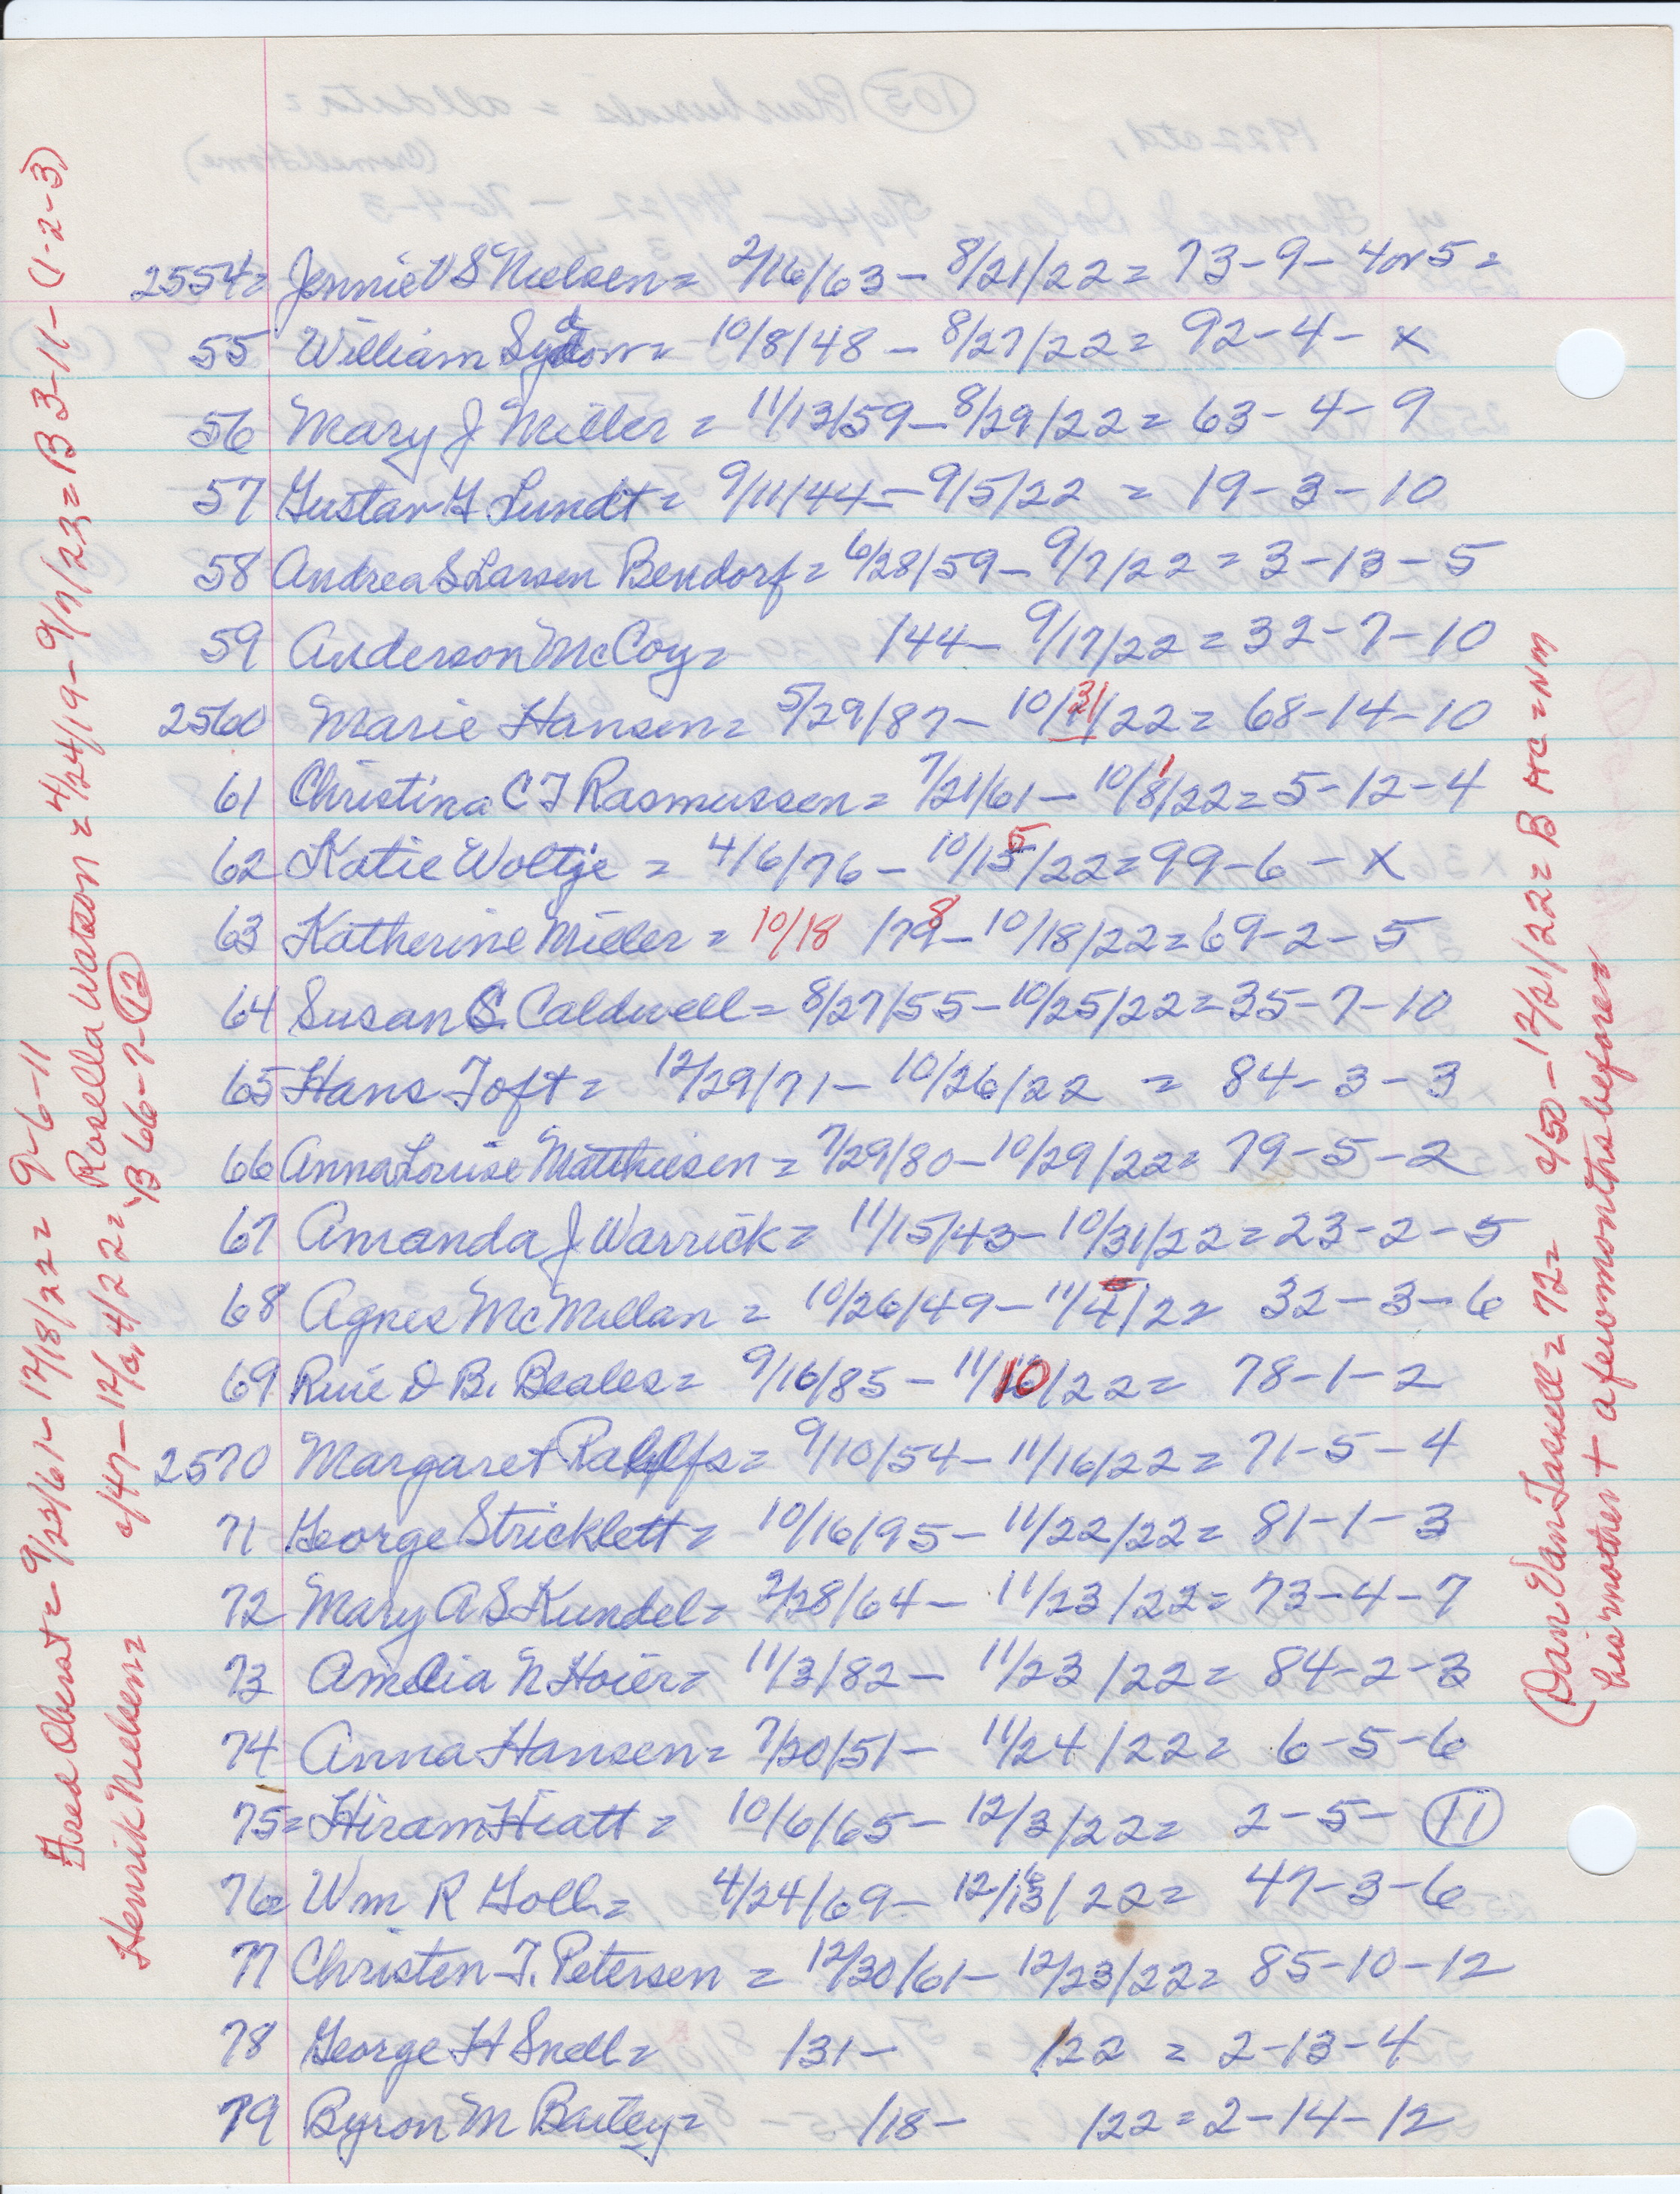 2554= Jennie V S Nielsen = 2/16/63 - 8/21/22 = 73-9-4 or 5 =
55 William Sydom = 10/8/48 - 8/27/22 = 92-4-x
56 Mary J Miller = 11/13/59 - 8/29/22 = 63-4-9
57 Gustav G Lundt = 9/11/44 - 9/5/22 = 19-3-10
58 Andrea S Larsen Bendorf = 6/28/59 - 9/7/22 = 3-13-5
59 Anderson McCoy = /44 - 9/17/22 = 32-7-10
2560 Marie Hansen = 5/29/87 - 10/31/22 = 68-14-10
61 Christina C J Rasmussen = 7/21/61 - 10/8/22 = 5-12-4
62 Katie Woltje = 4/6/76 - 10/15/22 = 99-6-x
63 Katherine Miller = 10/18 /78 - 10/18/22 = 69-2-5
64 Susan S. Caldwell = 8/27/55 - 10/25/22 = 35-7-10
65 Hans Toft = 12/29/71 - 10/26/22 = 84-3-3
66 Anna Louise Matthiesen = 7/29/80 - 10/29/22 = 79-5-2
67 Amanda J Warrick = 11/15/43 - 10/31/22 = 23-2-5
68 Agnes McMillan = 10/26/49 - 11/4/22 = 32-3-6
69 Ruie D B. Beales = 9/16/85 - 11/10/22 = 78-1-2
2570 Margaret Rahlfs = 9/10/54 - 11/16/22 = 71-5-4
71 George Stricklett = 10/16/95 - 11/22/22 = 81-1-3
72 Mary A S Kundel = 2/28/64 - 11/23/22 = 73-4-7
73 Amelia N Hoier = 11/3/82 - 11/23/22 = 84-2-3
74 Anna Hansen = 7/20/51 - 11/24/22 = 6-5-6
75= Hiram Hiatt = 10/6/65 - 12/3/22 = 2-5-11
76= Wm R Goll = 4/24/69 - 12/13/22 = 47-3-6
77 Christen T. Petersen = 12/30/61 - 12/23/22 = 85-10-12
78 George H Snell = /31 - /22 = 2-13-4
79 Byron M Bailey = /18 - /22 = 2-14-12
Fred Obenst = 9/23/61 - 12/18/22 = 9-6-11
Rosella Watson = 4/24/19 - 9/7/23 = B 3-11-(1-2-3)
Henrik Nielsen = c/47 - 12/c,4/22 = B 66-7-12
(Dan Van Tassell = 72 = c/50 - 12/21/22 = B HC = NM
his mother + a few months before =